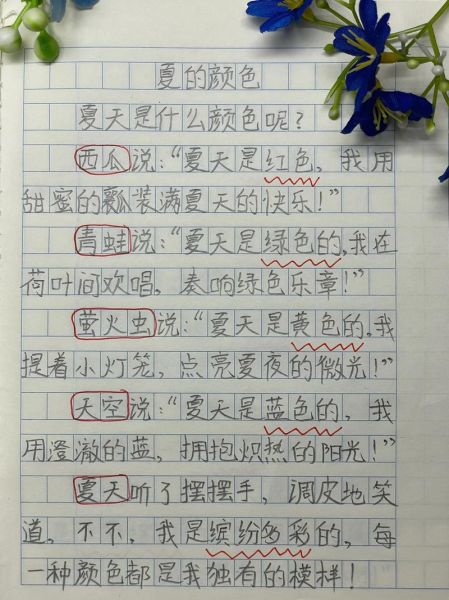 夏的颜色
夏天是什么颜色呢？
西瓜说：“夏天是红色，我用
甜蜜的瓤装满夏天的快乐！”
青蛙说：“夏天是绿色的，我在
荷叶间欢唱，奏响绿色乐章！”
萤火虫说：“夏天是黄色的，我
提着小灯笼，点亮夏夜的微光！”
天空说：“夏天是蓝色的，我
用澄澈的蓝，拥抱炽热的阳光！”
夏天听了摆摆手，调皮地笑
道，不不，我是缤纷多彩的，每
一种颜色都是我独有的模样！